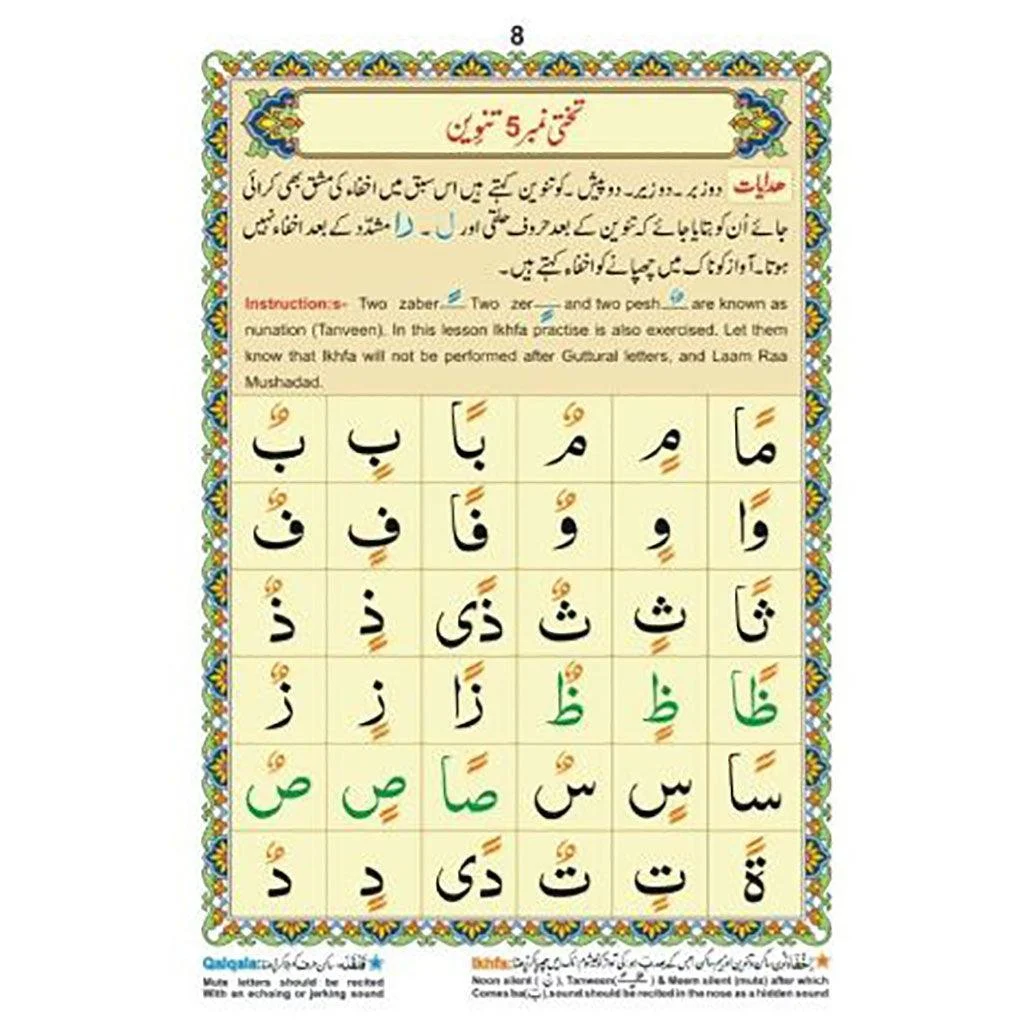 8
تختی نمبر 5 تنوین
ھدایات دوزبر۔دوزیر۔دوپیش۔کوتنوین کہتے ہیں اس سبق میں اخفاء کی مشق بھی کرائی
جائے اُن کو بتایا جائے کہ تنوین کے بعد حروف حلقی اور ل۔ را مشدّد کے بعد اخفاء نہیں
ہوتا۔آواز کو ناک میں چھپانے کو اخفاء کہتے ہیں۔
Instruction:s- Two zaber ً Two zer ٍ and two pesh ٌ are known as
nunation (Tanveen). In this lesson Ikhfa practise is also exercised. Let them
know that Ikhfa will not be performed after Guttural letters, and Laam Raa
Mushadad.
مًا مٍ مٌ بًا بٍ بٌ
وًا وٍ وٌ فًا فٍ فٌ
ثًا ثٍ ثٌ ذًی ذٍ ذٌ
ظًا ظٍ ظٌ زًا زٍ زٌ
سًا سٍ سٌ صًا صٍ صٌ
ةً تٍ تٌ دًی دٍ دٌ
Qalqala: قَلْقَلَہ: ساکن حرف کو ہلا کر پڑھنا
Mute letters should be recited
With an echoing or jerking sound
Ikhfa:
Noon silent ( نْ ), Tanween( ًٍ ) & Meem silent (mute) after which
Comes ba(ب),sound should be recited in the nose as a hidden sound